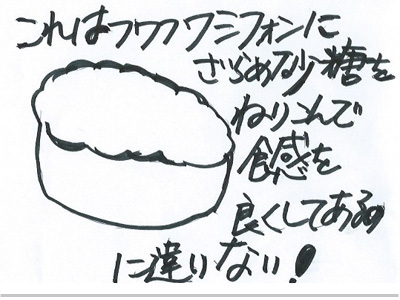 これはフワフワシフォンに
ざらめ砂糖を
ねりこんで
食感を
良くしてあるの
に違いない!